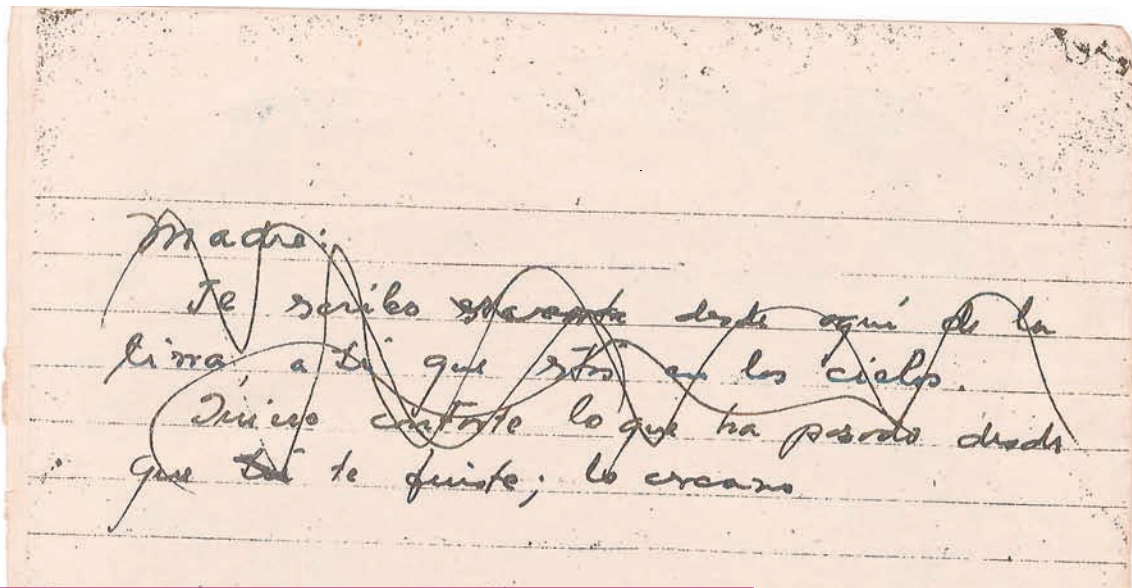 Madre:
Te scribo desde aquí de la
tirra, a ti que stás en los cielos.
Quiero contarte lo que ha pasado desde
que te fuiste; lo